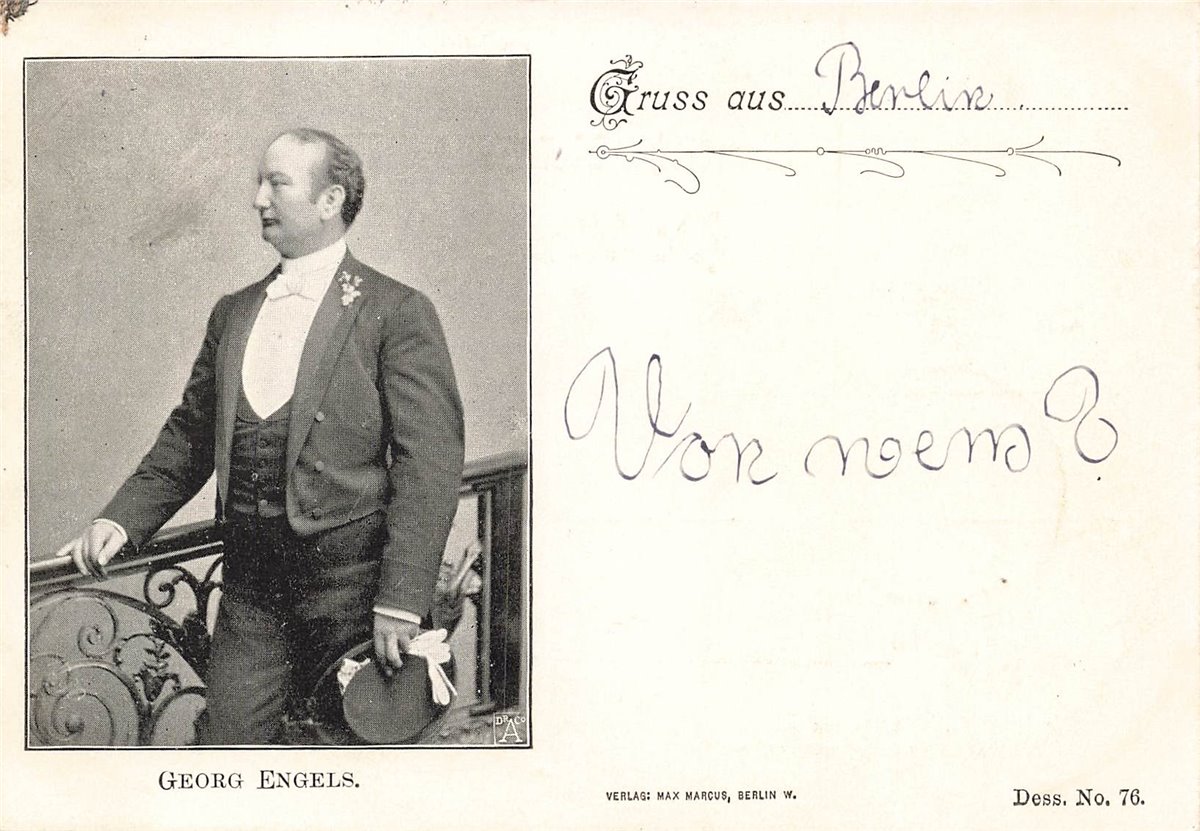 Gruss aus Berlin
Von wem?
DR. A & CO
GEORG ENGELS.
VERLAG: MAX MARCUS, BERLIN W.
Dess. No. 76.